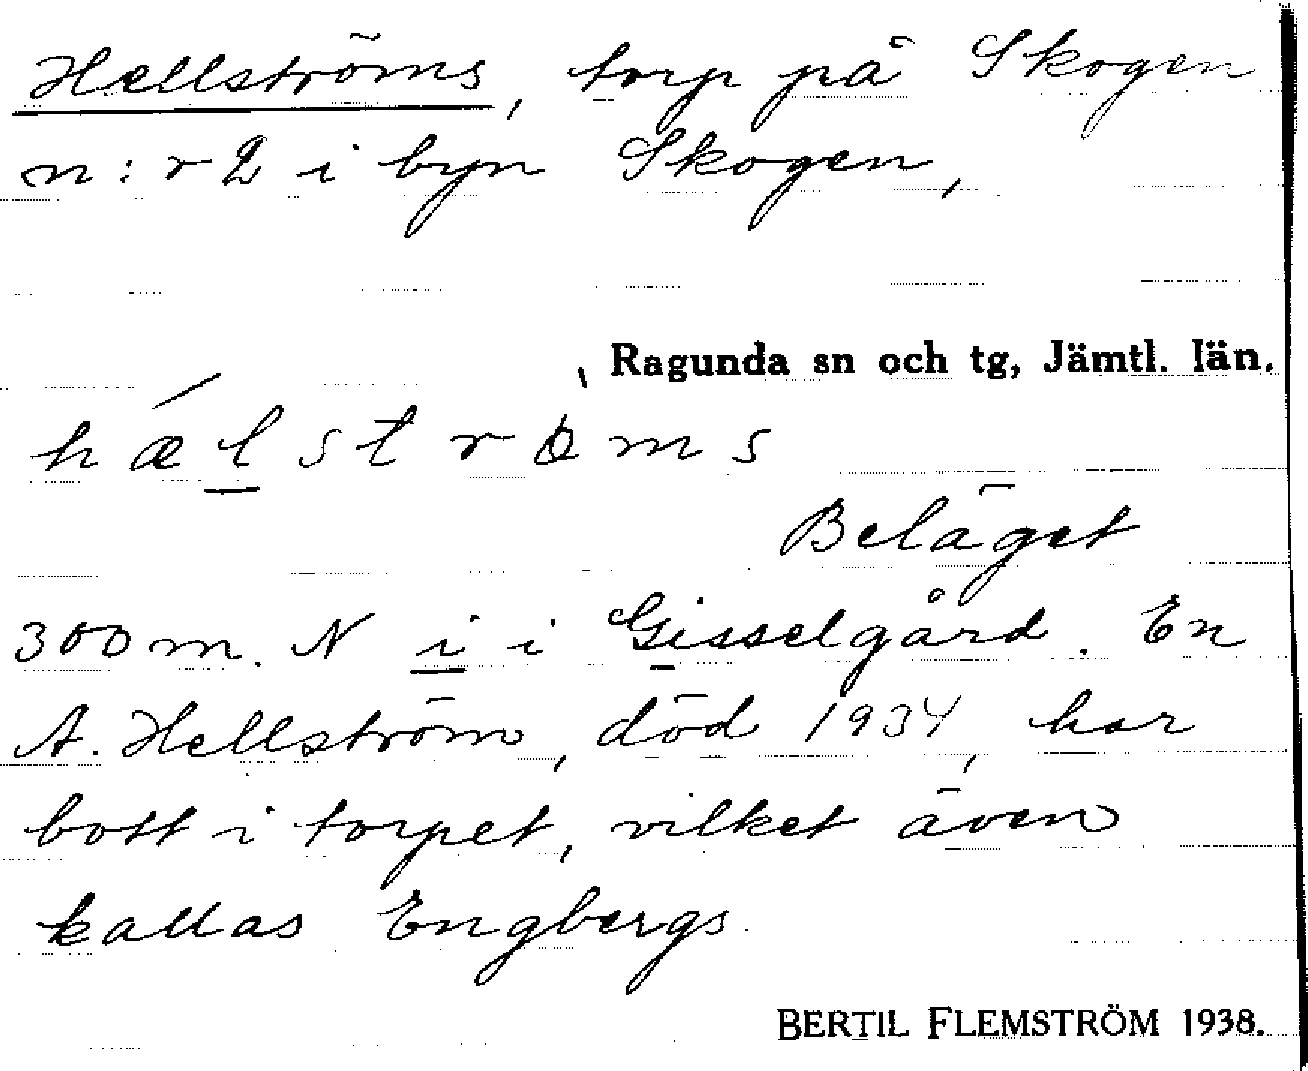 Hellströms, torp på Skogen
n:r 2 i byn Skogen,
, Ragunda sn och tg, Jämtl. län.
hǽlströms
Beläget
300 m. N i i Gisselgård. En
A. Hellström, död 1934, har
bott i torpet, vilket även
kallas Engbergs.
BERTIL FLEMSTRÖM 1938.